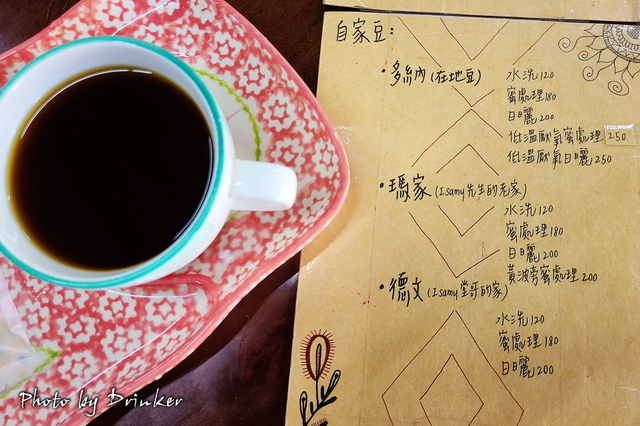 自家豆：
・多納（在地豆）
水洗120
蜜處理180
日曬200
低溫厭氧蜜處理250
低溫厭氧日曬250
・瑪家（Isamy先生的老家）
水洗120
蜜處理180
日曬200
黃波旁蜜處理200
・德文（Isamy堂哥的家）
水洗120
蜜處理180
日曬200
Photo by Drinker